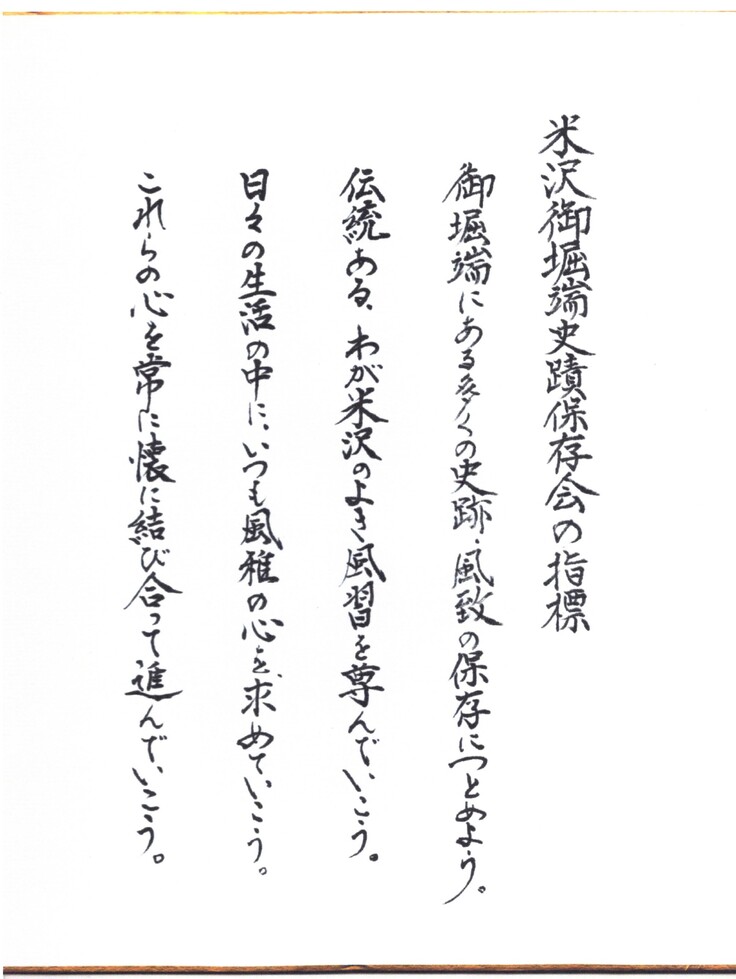 米沢御堀端史蹟保存会の指標
御堀端にある多くの史跡、風致の保存につとめよう。
伝統ある、わが米沢のよき風習を尊んでいこう。
日々の生活の中に、いつも風雅の心を、求めていこう。
これらの心を常に懐に結び合って進んでいこう。